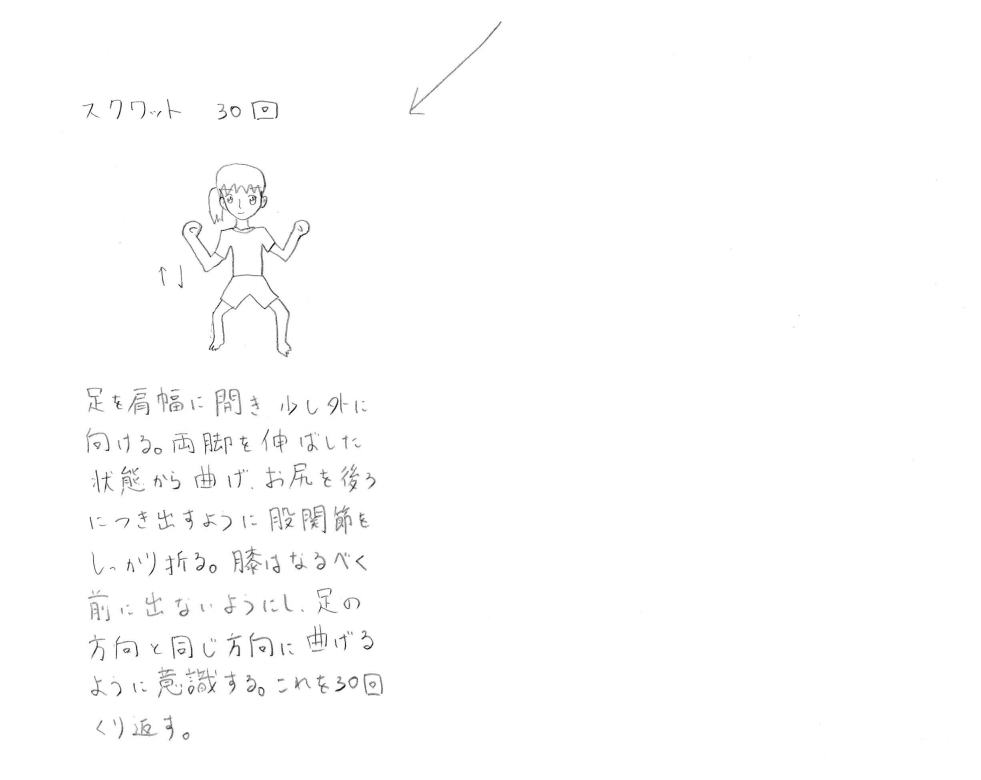 スクワット 30回
足を肩幅に開き 少し外に
向ける。両脚を伸ばした
状態から曲げ、お尻を後ろ
につき出すように股関節を
しっかり折る。膝はなるべく
前に出ないようにし、足の
方向と同じ方向に曲げる
ように意識する。これを30回
くり返す。